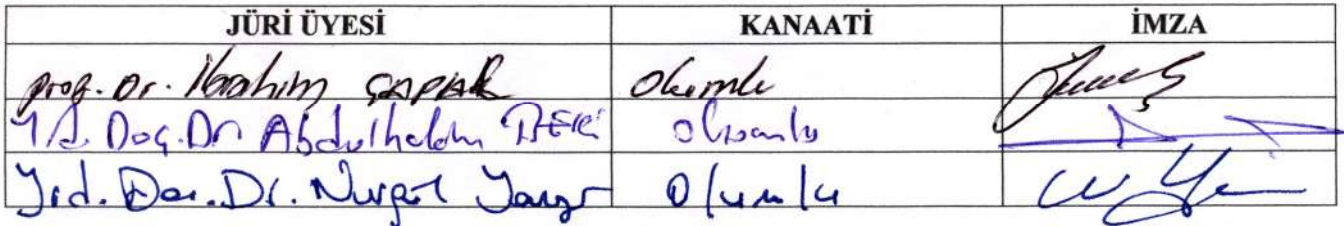 JÜRİ ÜYESİ KANAATİ İMZA
Prof. Dr. İbrahim ÇAPAK Olumlu
Yrd. Doç. Dr. Abdulhalim Olumlu
Yrd. Doç. Dr. Nurgül Olumlu